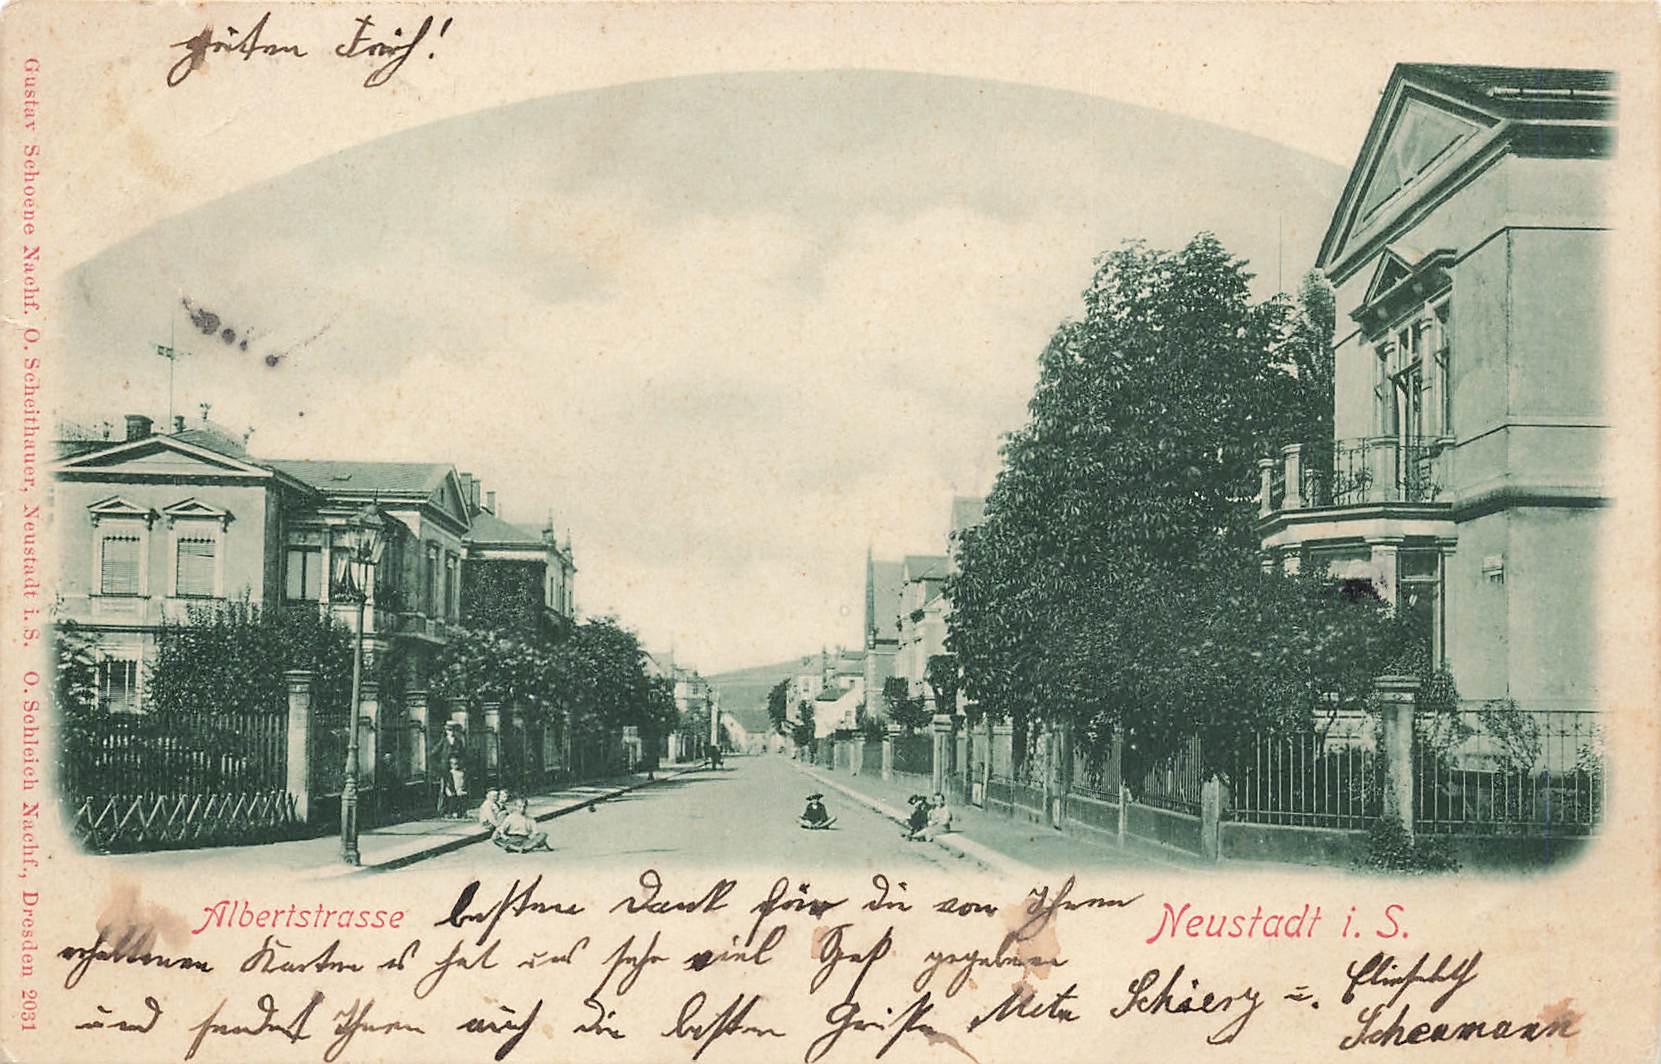 guten Tach!
Gustav Schoene Nachf. O. Scheithauer, Neustadt i. S. O. Schleich Nachf., Dresden 2031
Albertstrasse
Neustadt i. S.
besten Dank für die von Ihnen
erhaltenen Karten es hat uns sehr viel Spaß gegeben
und sendet Ihnen auch die besten Grüße Meta u. Elisabeth
Scheumann